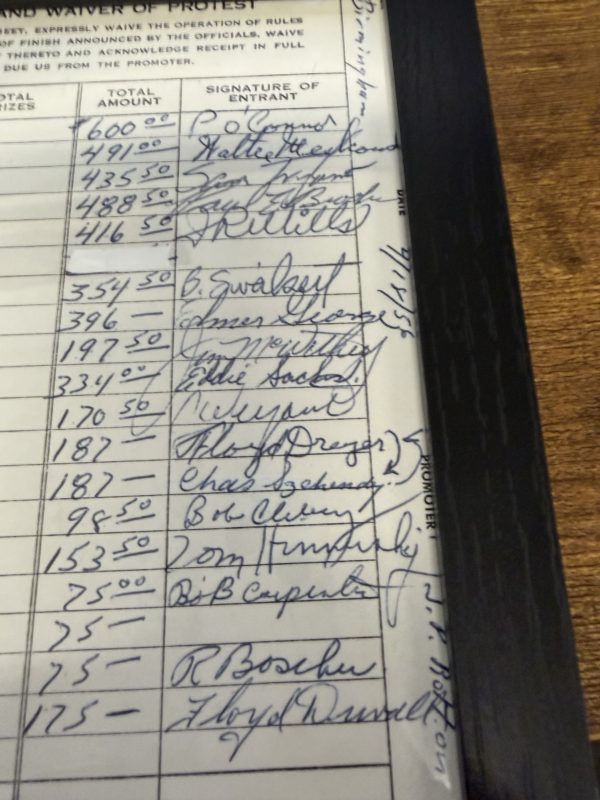 AND WAIVER OF PROTEST
EET, EXPRESSLY WAIVE THE OPERATION OF RULES
OF FINISH ANNOUNCED BY THE OFFICIALS, WAIVE
THERETO AND ACKNOWLEDGE RECEIPT IN FULL
DUE US FROM THE PROMOTER.
OTAL RIZES TOTAL AMOUNT SIGNATURE OF ENTRANT
600 00 P O'Connor
491 00
435 50 Sam
488 50
416 50
354 50 B. Swa
396 — Elmer George
197 50 Jim McWithey
334 00 Eddie Sachs
170 50
187 — Floyd Dreyer
187 — Chas Szekendy
98 50 Bob Cleberg
153 50 Tom Hinnershitz
75 00 Bob Carpenter
75 —
75 — R Boscher
175 — Floyd Duvall
Birmingham
DATE
PROMOTER
J. P. Bolton